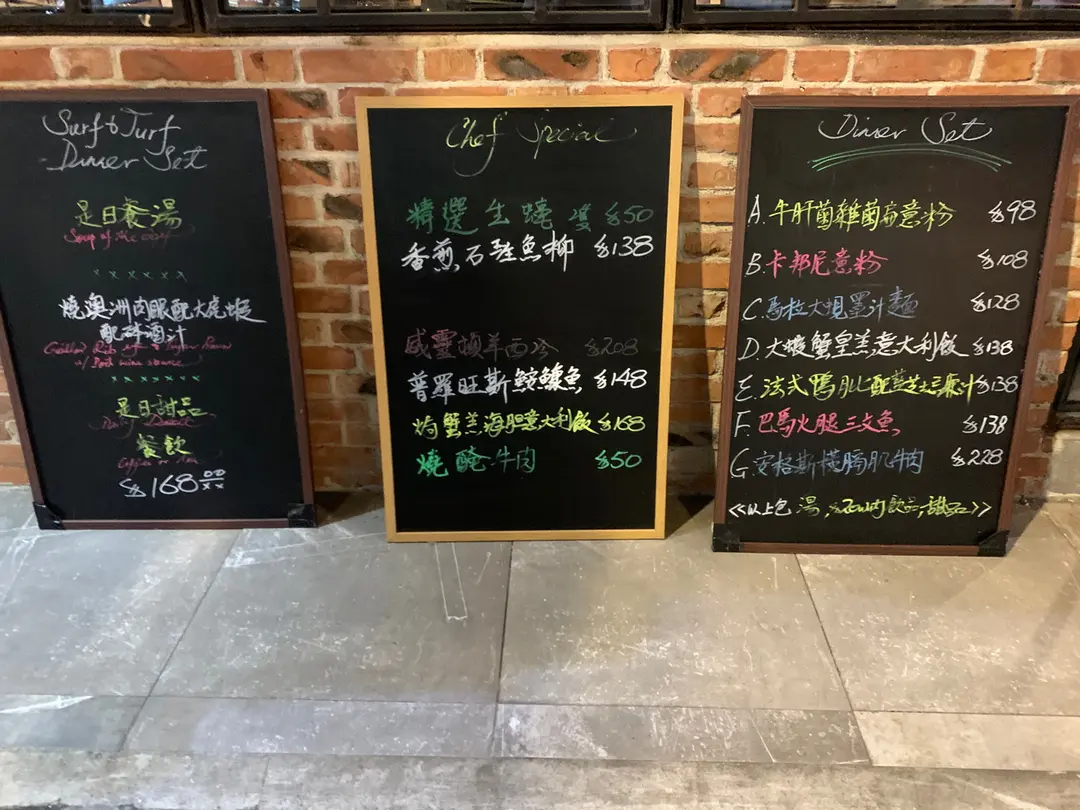 Surf & Turf
Dinner Set
是日餐湯
Soup of the day
xxxxxx
燒澳洲肉眼配大虎蝦
配砵酒汁
Grilled Rib eye & Tiger Prawn
w/ Port wine sauce
xxxxxx
是日甜品
Daily Dessert
餐飲
Coffee or Tea
$168
Chef Special
精選生蠔 隻 $50
香煎石班魚柳 $138
威靈頓羊西冷 $208
普羅旺斯鮟鱇魚 $148
焗蟹羔海胆意大利飯 $168
燒醃牛肉 $50
Dinner Set
A. 牛肝菌雜菌菇意粉 $98
B. 卡邦尼意粉 $108
C. 馬拉大蜆墨汁麵 $128
D. 大蝦蟹皇羔意大利飯 $138
E. 法式鴨肶配芝士汁 $138
F. 巴馬火腿三文魚 $138
G. 安格斯橫膈肌牛肉 $228
<<以上包 湯, 飲品, 甜品>>